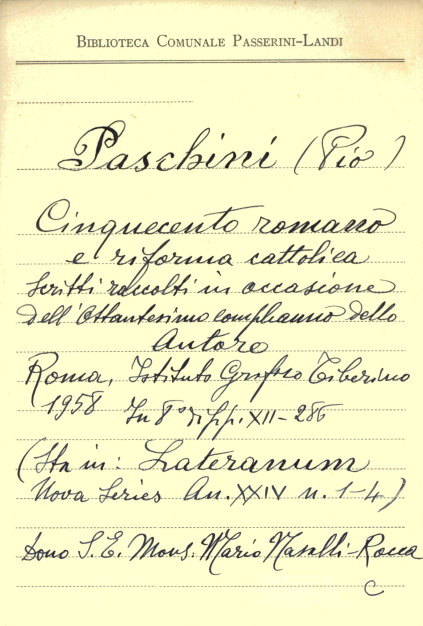 BIBLIOTECA COMUNALE PASSERINI-LANDI
Paschini (Pio)
Cinquecento romano
e riforma cattolica
Scritti raccolti in occasione
dell'Ottantesimo compleanno dello
Autore
Roma, Istituto Grafico Tiberino
1958 In 8° di pp. XII-286
(Sta in: Lateranum
Nova Series An. XXIV n. 1-4)
Dono S. E. Mons. Mario Nasalli-Rocca
C